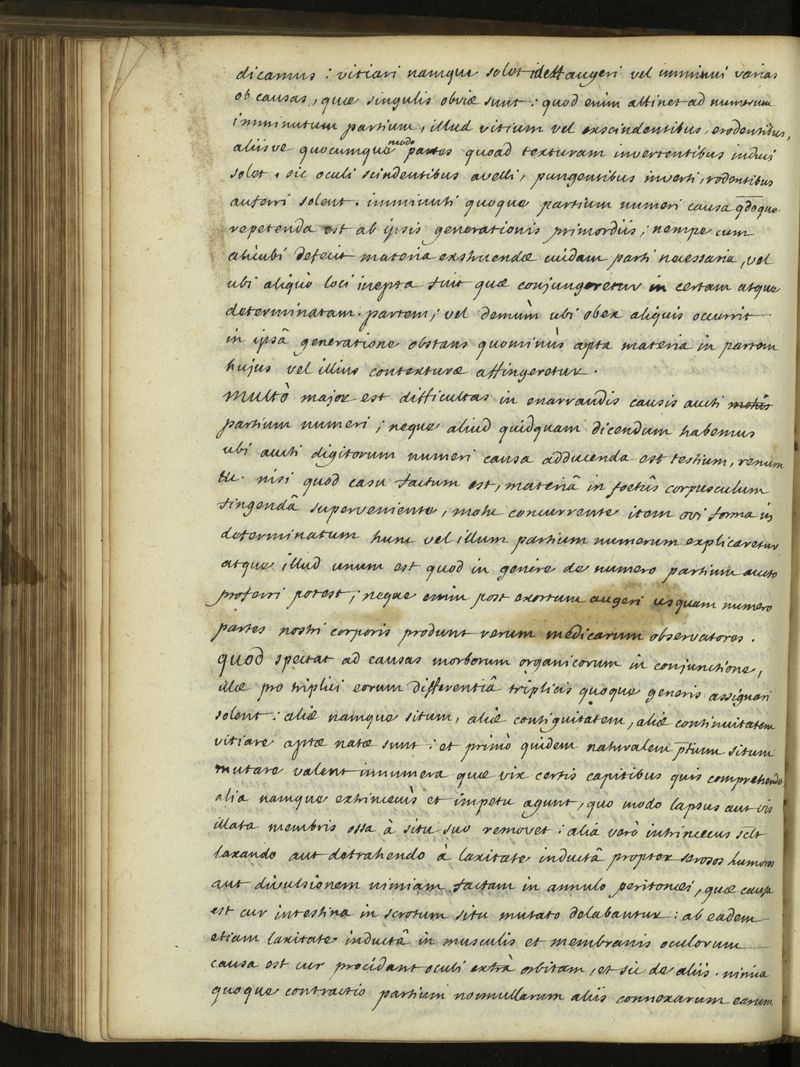 dicamus : vitiari namque solet id est augeri vel imminui varias
ob causas, quæ singulis obviæ sunt : quod enim attinet ad numerum
imminutum partium, illud vitium vel exscindentibus, erodentibus,
aliisve quocumque modo partes quoad texturam invertentibus induci
solet. sic oculi scindentibus avelli, pungentibus inverti, rodentibus
auferri solent. imminuti quoque partium numeri causa qdoque
repetenda est ab ipsis generationis primordiis ; nempe cum
alicubi defecit materia exstruendæ cuidam parti necessaria, vel
ubi aliquò loci inepta fuit quæ conjungeretur in certam atque
determinatam partem ; vel demùm ubi obex aliquis occurrit
in ipsâ generatione obstans quominùs apta materia in partem
hujus vel illius contexturæ affingeretur.
Multò major est difficultas in enarrandis causis aucti
partium numeri ; neque aliud quidquam dicendum habemus
ubi aucti digitorum numeri causa adducenda est testium, renum
&c. nisi quod casu factum est, materiâ in foetûs corpusculum
fingendâ superveniente, motu concurrente item ovi forma in
determinatum hunc vel illum partium numerum explicaretur
atque illud unum est quod in genere de numero partium aucto
proferri potest ; neque enim post exortum augeri usquam numero
partes nostri corporis produnt rerum medicarum observatores.
Quod spectat ad causas morborum organicorum in conjunctione,
illæ pro triplici eorum differentiâ triplicis quoque generis assignari
solent : aliæ namque situm, aliæ contiguitatem, aliæ continuitatem
vitiare aptæ natæ sunt : et primò quidem naturalem ptium situm
mutare valent innumera quæ vix certis capitibus quis comprehendet
alia namque extrinsecùs et impetu agunt, quo modo lapsus aut vis
illata membris ossa à situ suo removet : alia verò intrinsecus sclt
laxando aut detrahendo à laxitate inductâ propter serosos humores
aut divulsionem nimiam factam in annulo peritonæi, quæ causa
est cur intestina in scrotum situ mutato delabantur : ab eadem
etiam laxitate inductâ in musculis et membranis oculorum
causa est cur procidant oculi extrà orbitam, et sic de aliis. nimia
quoque contractio partium nonnullarum aliis connexarum earum